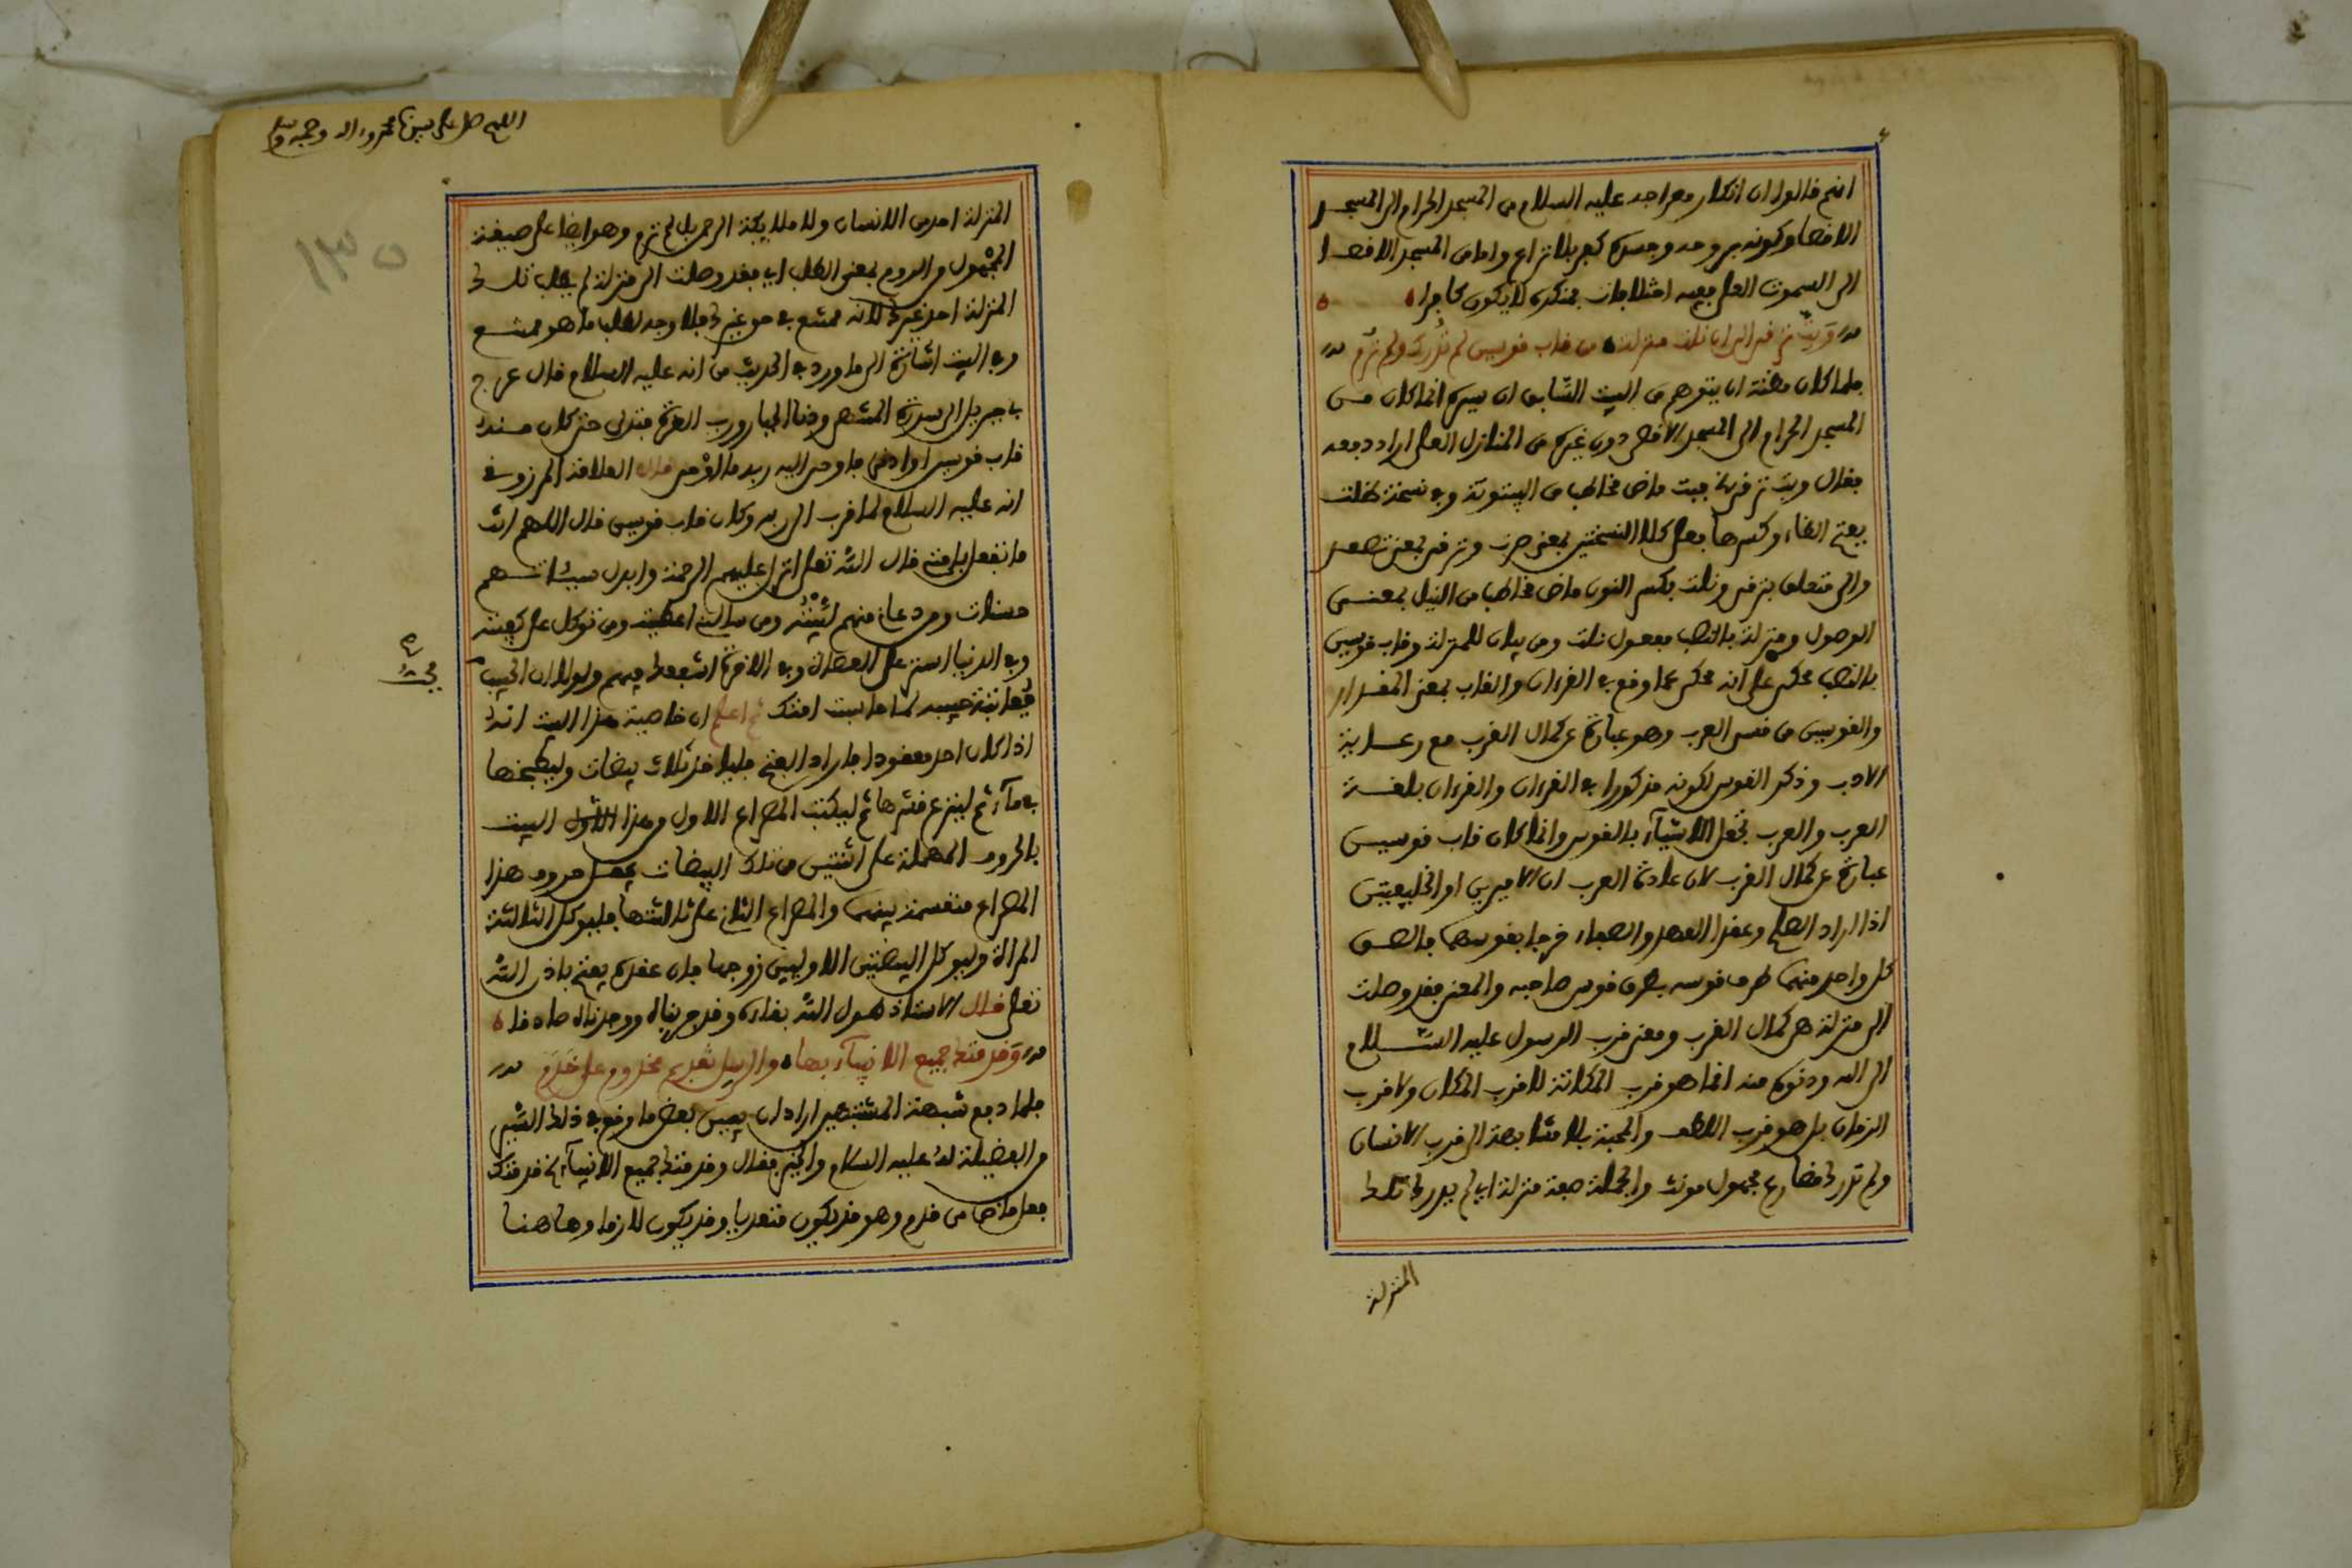 انهم قالوا ان انكار معراجه عليه السلام من المسجد الحرام الى المسجد
الاقصا وكونه بروحه وجسده كفر بلا نزاع واما من المسجد الاقصا
الى السموت العلى ففيه اختلاف فمنكره لا يكون كافرا
وبتّ ترقى الى ان نلت منزلة من قاب قوسين لم تُدرك ولم تُرم
فلما كان مظنة ان يتوهم من البيت السّابق ان سيره انما كان من
المسجد الحرام الى المسجد الاقصى دون غيره من المنازل العلى اراد دفعه
فقال وبت ترقى الخ فبت ماض مخاطب من البيتوتة وفي نسخة ظلت
بفتح الظاء وكسرها فعلى كلا النسختين بمعنى صرت وترقى بمعنى تصعد
والى متعلق بترقى ونلت بكسر النون ماض مخاطب من النيل بمعنى
الوصول ومنزلة بالنصب مفعول نلت ومن بيان للمنزلة وقاب قوسين
بالنصب محكى على انه محكى عما وقع في القرءان والقاب بمعنى المقدار
والقوسين من قسى العرب وهو عبارة عن كمال القرب مع رعاية
الادب وذكر القوس لكونه مذكورا في القرءان والقرءان بلغة
العرب والعرب تجعل الاشيآء بالقوس وانما كان قاب قوسين
عبارة عن كمال القرب لان عادة العرب ان الاميرين او الخليفتين
اذا اراد الصلح وعقدا العهد والصفاء خرجا بقوسهما فالصق
كل واحد منهما طرف قوسه بطرف قوس صاحبه والمعنى فقد وصلت
الى منزلة هى كمال القرب ومعنى قرب الرسول عليه السّلام
الى الله ودنوه منه انما هو قرب المكانة لا قرب المكان ولا قرب
الزمان بل هو قرب اللطف والمحبة بلا مشابهة الى قرب الانسان
ولم تدرك مضارع مجهول مونث والجملة صفة منزلة اي لم يدرك تلك
المنزلة
اللهم صل على سيدنا محمد وءاله وصحبه وسلم
١٣٥
المنزلة احد من الانسان ولا ملايكة الرحمن بل لم ترم وهو ايضا على صيغة
المجْهول والروم بمعنى الطلب اي فقد وصلت الى منزلة لم يطلب تلك
المنزلة احد غيرك لانه ممتنع في حق غيرك فلا وجه لطلب ما هو ممتنع
وفي البيت اشارة الى ما ورد في الحديث من انه عليه السلام قال عرج
بي جبريل الى سدرة المنتهى ودنا الجبار ورب العزة فتدلى حتى كان منه
قاب قوسين او ادنى فاوحى اليه ربه ما اوْحى قال العلامة المرزوقى
انه عليه السلام لما قرب الى ربه وكان قاب قوسين قال اللهم انت
ما تفعل بامتى قال الله تعلى انزل عليهم الرحمة وابدل سيئاتهم
حسنات ومن دعانى منهم لبّيْتُه ومن سالنى اعطيته ومن توكل على كفيته
وفي الدنيا استر على العصاة وفي الاخرة اشفعك فيهم ولولا ان الحبيب
يحب
معاتبة حبيبه لما حاسبت امتك ثم اعلم ان خاصية هذا البيت انه
اذا كان احد معقودا فاراد الفتح فلياخذ ثلاث بيضات وليطبخها
في مآء ثم لينزع قشرها ثم ليكتب المصراع الاول من هذا البيت
بالحروف المهملة على اثنتين من تلك البيضات حروف هذا
المصراع منقسمة بينهما والمصراع الثاني على ثالثتها فلياكل الثالثة
المراة ولياكل البيضتين الاوليين زوجها فان عقده يفتح باذن الله
تعلى قال الاستاذ طول الله بقاءه وقد جربناه ووجدناه صادقا
وَقدمتك جميع الانبيآء بها والرسل تقديم مخدوم على خَدَم
فلما دفع شبهة المشتبهين اراد ان يبين بعض ما وقع في ذلك السّير
من الفضيلة لهُ عليه السلام والخير فقال وقدمتك جميع الانبيآء الخ قدمتك
فعل ماض من قدم وهو قد يكون متعديا وقد يكون لازما وهاهنا